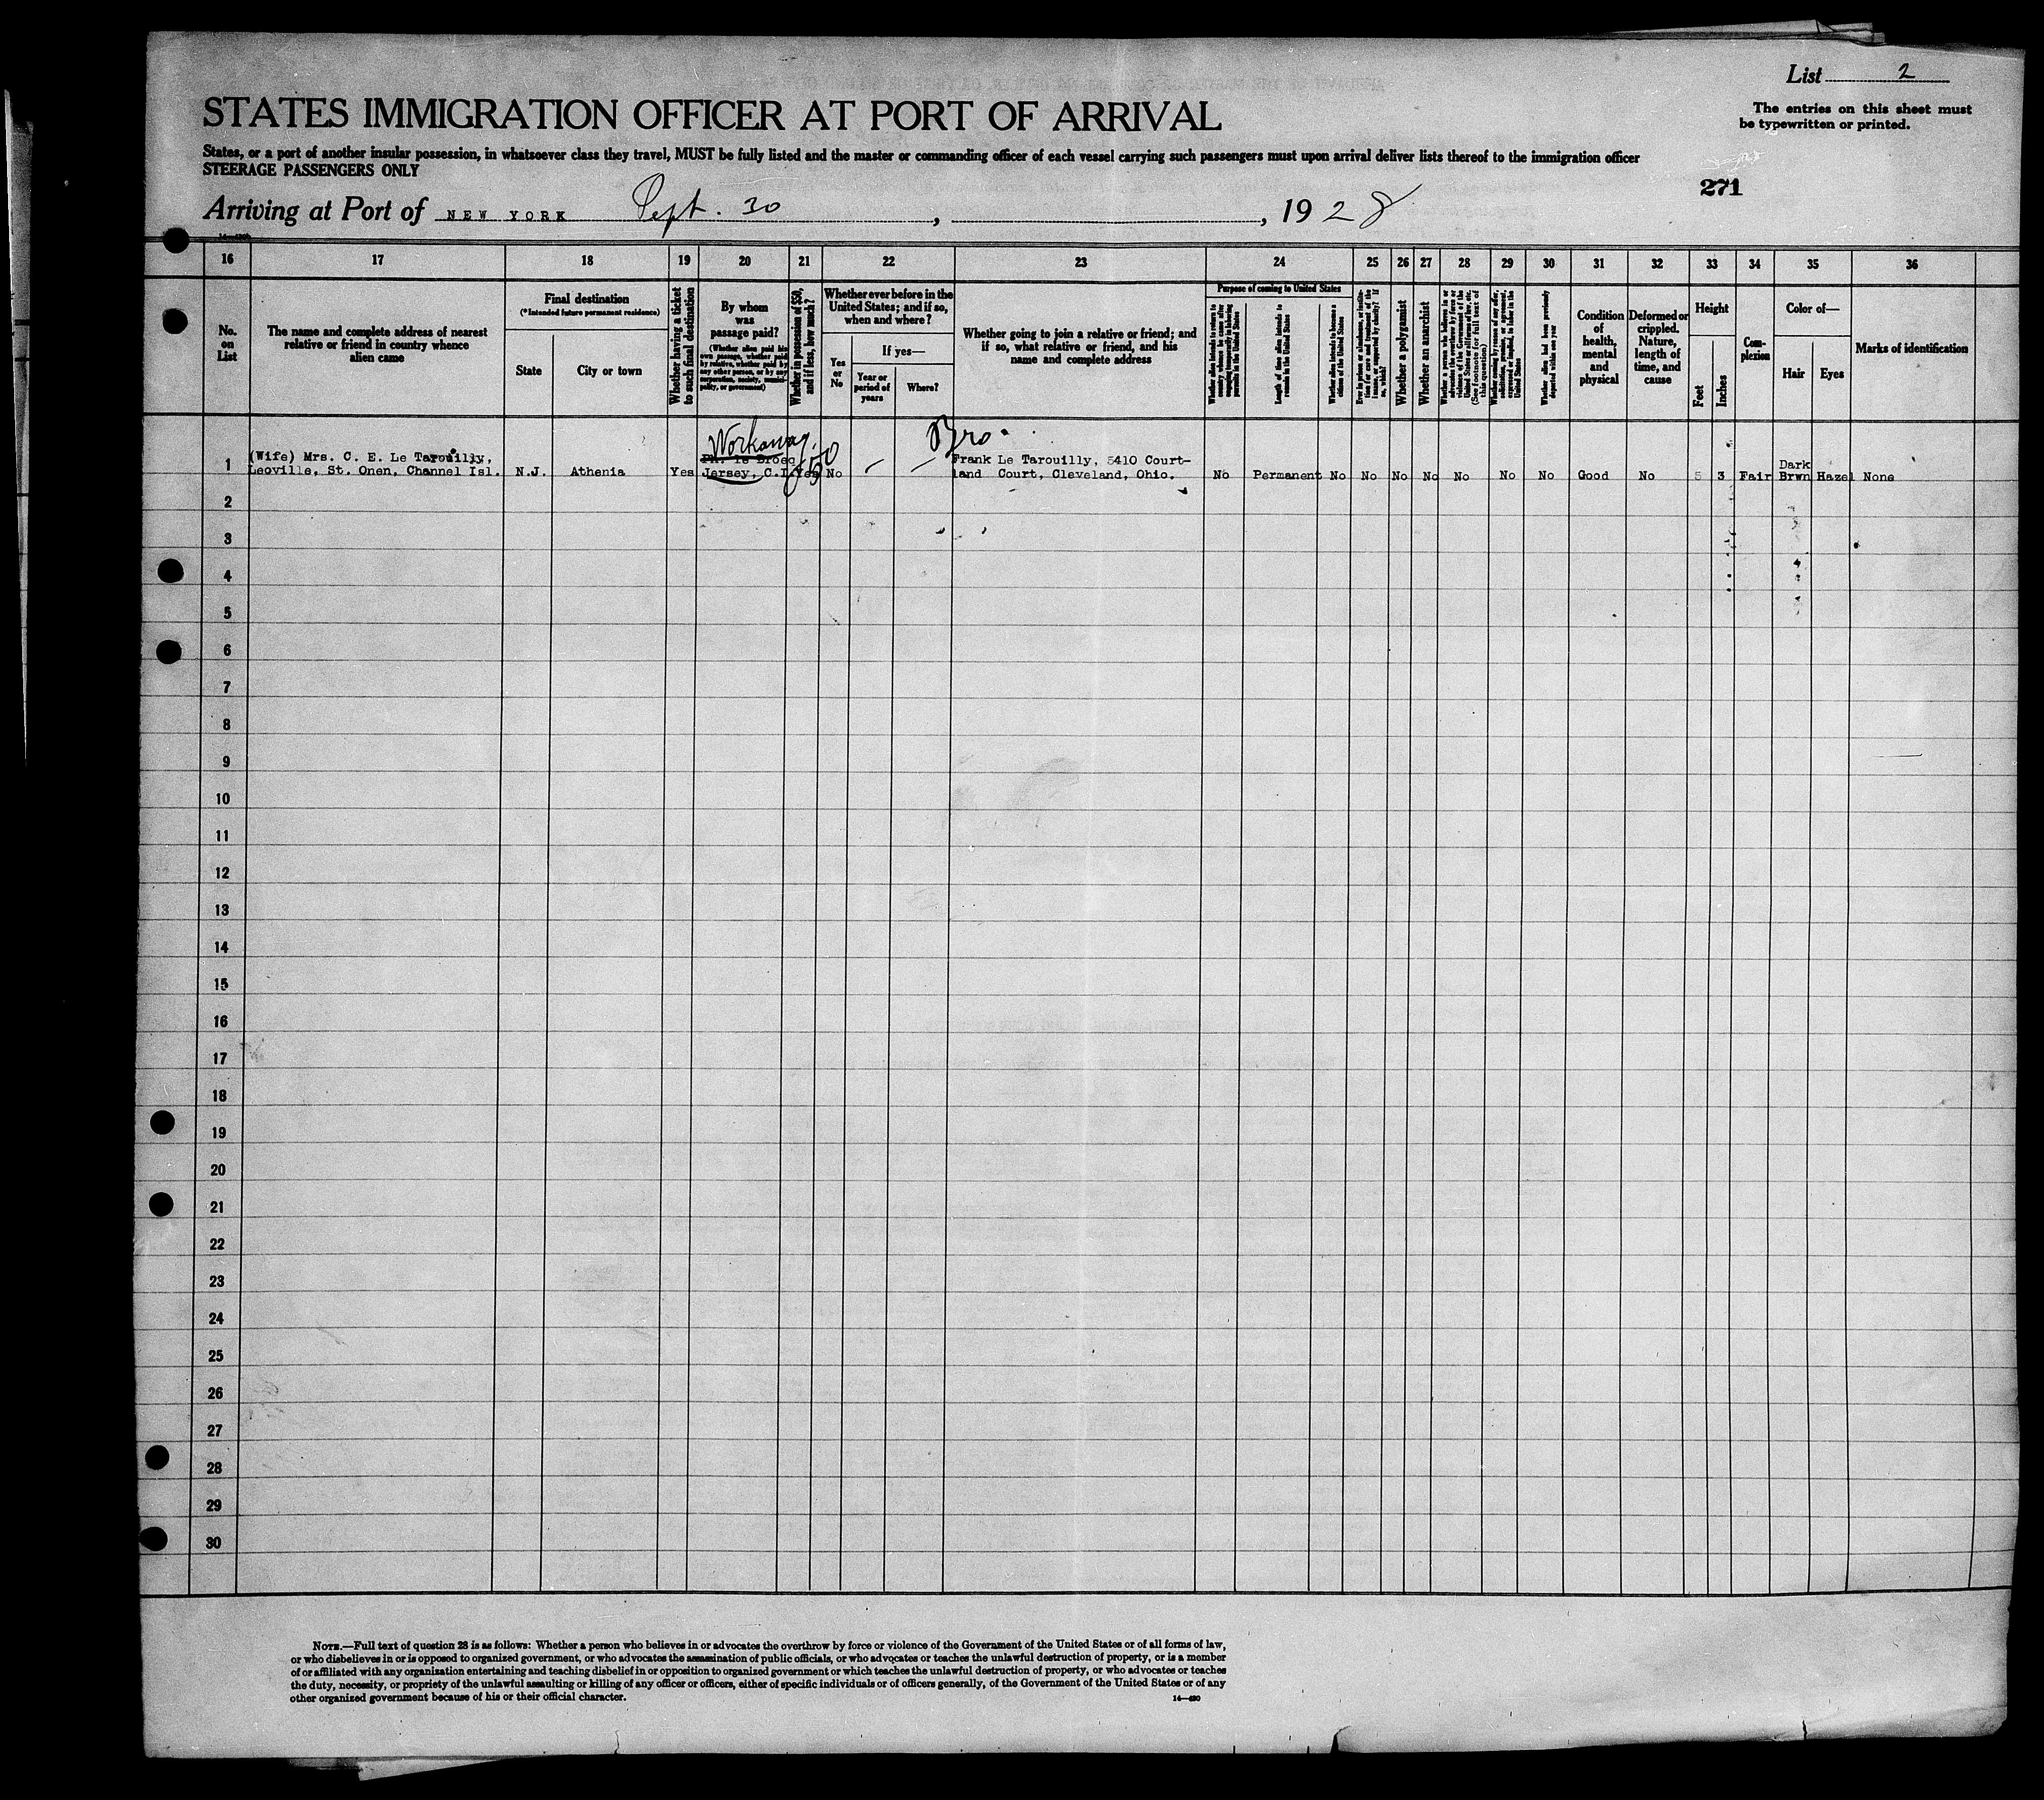 List 2
STATES IMMIGRATION OFFICER AT PORT OF ARRIVAL
The entries on this sheet must
be typewritten or printed.
States, or a port of another insular possession, in whatsoever class they travel, MUST be fully listed and the master or commanding officer of each vessel carrying such passengers must upon arrival deliver lists thereof to the immigration officer
STEERAGE PASSENGERS ONLY
271
Arriving at Port of NEW YORK Sept. 30, , 1928
16 17 18 19 20 21 22 23 24 25 26 27 28 29 30 31 32 33 34 35 36
No.
on
List
The name and complete address of nearest
relative or friend in country whence
alien came
Final destination
(*Intended future permanent residence)
State
City or town
Whether having a ticket
to such final destination
By whom
was
passage paid?
(Whether alien paid his
own passage, whether paid
by relative, whether paid by
any other person, or by any
corporation, society, munici-
pality, or government)
Whether in possession of $50,
and if less, how much?
Whether ever before in the
United States; and if so,
when and where?
Yes
or
No
If yes—
Year or
period of
years
Where?
Whether going to join a relative or friend; and
if so, what relative or friend, and his
name and complete address
Purpose of coming to United States
Whether alien intends to return to
country whence he came after
engaging temporarily in laboring
pursuits in the United States
Length of time alien intends to
remain in the United States
Whether alien intends to become a
citizen of the United States
Ever in prison or almshouse, or institu-
tion for care and treatment of the
insane, or supported by charity? If
so, which?
Whether a polygamist
Whether an anarchist
Whether a person who believes in or
advocates the overthrow by force or
violence of the Government of the
United States or all forms of law, etc.
(See footnote for full text of
this question)
Whether coming by reason of any offer,
solicitation, promise, or agreement,
expressed or implied, to labor in the
United States
Whether alien had been previously
deported within one year
Condition
of
health,
mental
and
physical
Deformed or
crippled.
Nature,
length of
time, and
cause
Height
Feet
Inches
Com-
plexion
Color of—
Hair
Eyes
Marks of identification
Workaway. 50 Bro.
1 (Wife) Mrs. C. E. Le Tarouilly, Frank Le Tarouilly, 5410 Court- Dark
Leoville, St. Onen, Channel Isl. N.J. Athenia Yes Jersey, C.I. Yes No — — land Court, Cleveland, Ohio. No Permanent No No No No No No No Good No 5 3 Fair Brwn Hazel None
2
3
4
5
6
7
8
9
10
11
12
13
14
15
16
17
18
19
20
21
22
23
24
25
26
27
28
29
30
NOTE.—Full text of question 28 is as follows: Whether a person who believes in or advocates the overthrow by force or violence of the Government of the United States or of all forms of law,
or who disbelieves in or is opposed to organized government, or who advocates the assassination of public officials, or who advocates or teaches the unlawful destruction of property, or is a member
of or affiliated with any organization entertaining and teaching disbelief in or opposition to organized government or which teaches the unlawful destruction of property, or who advocates or teaches
the duty, necessity, or propriety of the unlawful assaulting or killing of any officer or officers, either of specific individuals or of officers generally, of the Government of the United States or of any
other organized government because of his or their official character.
14—490